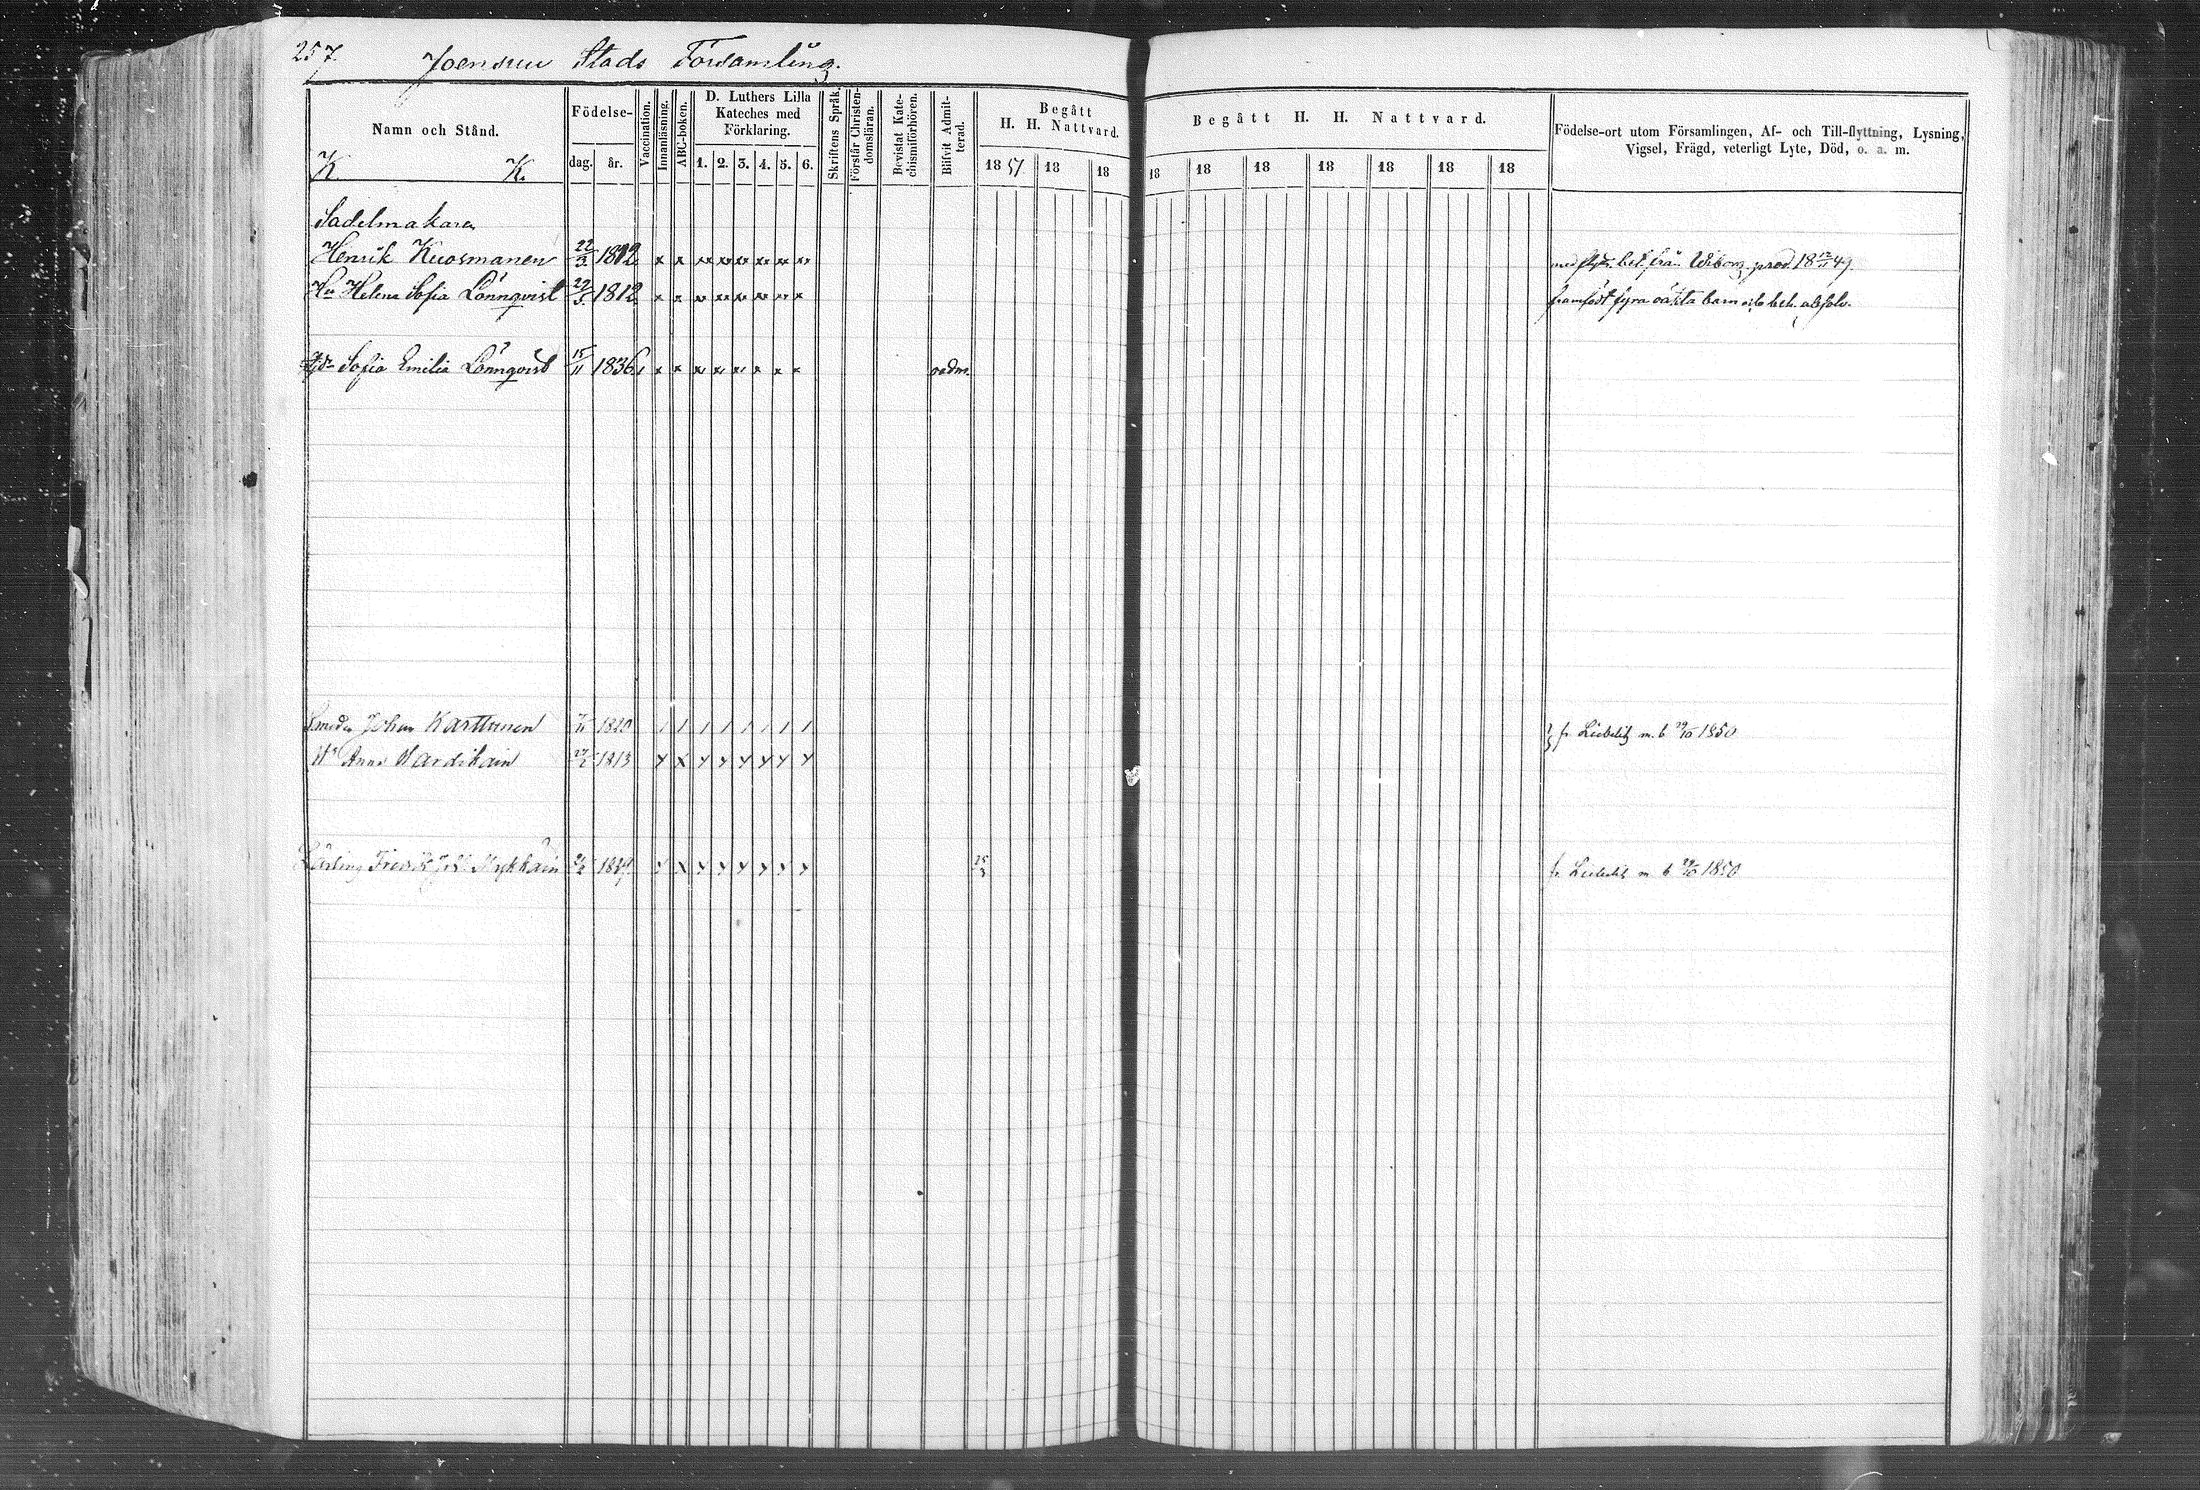 257. Joensuu Stads Församling.
Namn och Stånd.
K. K.
Födelse-
dag. år.
Vaccination.
Innanläsning.
ABC-boken.
D. Luthers Lilla
Kateches med
Förklaring.
1. 2. 3. 4. 5. 6.
Skriftens Språk.
Förstår Christen-
domsläran.
Bevistat Kate-
chismiförhören.
Blifvit Admit-
terad.
Begått
H. H. Nattvard.
1851 18 18
Begått H. H. Nattvard.
18 18 18 18 18 18 18
Födelse-ort utom Församlingen, Af- och Till-flyttning, Lysning,
Vigsel, Frägd, veterligt Lyte, Död, o. a. m.
Sadelmakaren
Henrik Kuosmanen 22/3 1812 x x x x x x x x bet. från Wiborg prod. 18 12/11 49.
Hu Helena Sofia Lönnqvist 29/5 1812 x x x x x x x x framfödt fyra oäkta barn och beh. absolv.
Sofia Emilia Lönnqvist 15/11 1836 x x x x x x x x oadm.
Smeden Johan Karttunen 1820 / / / / / / / / fr Liebelitz m. b 29/10 1850
Hu Anna Wardikain 1813 x x x x x x x x
Lärling Fredrik Joh. Mykkäin x x x x x x x x 25/3 fr Liebelitz m b 29/10 1850